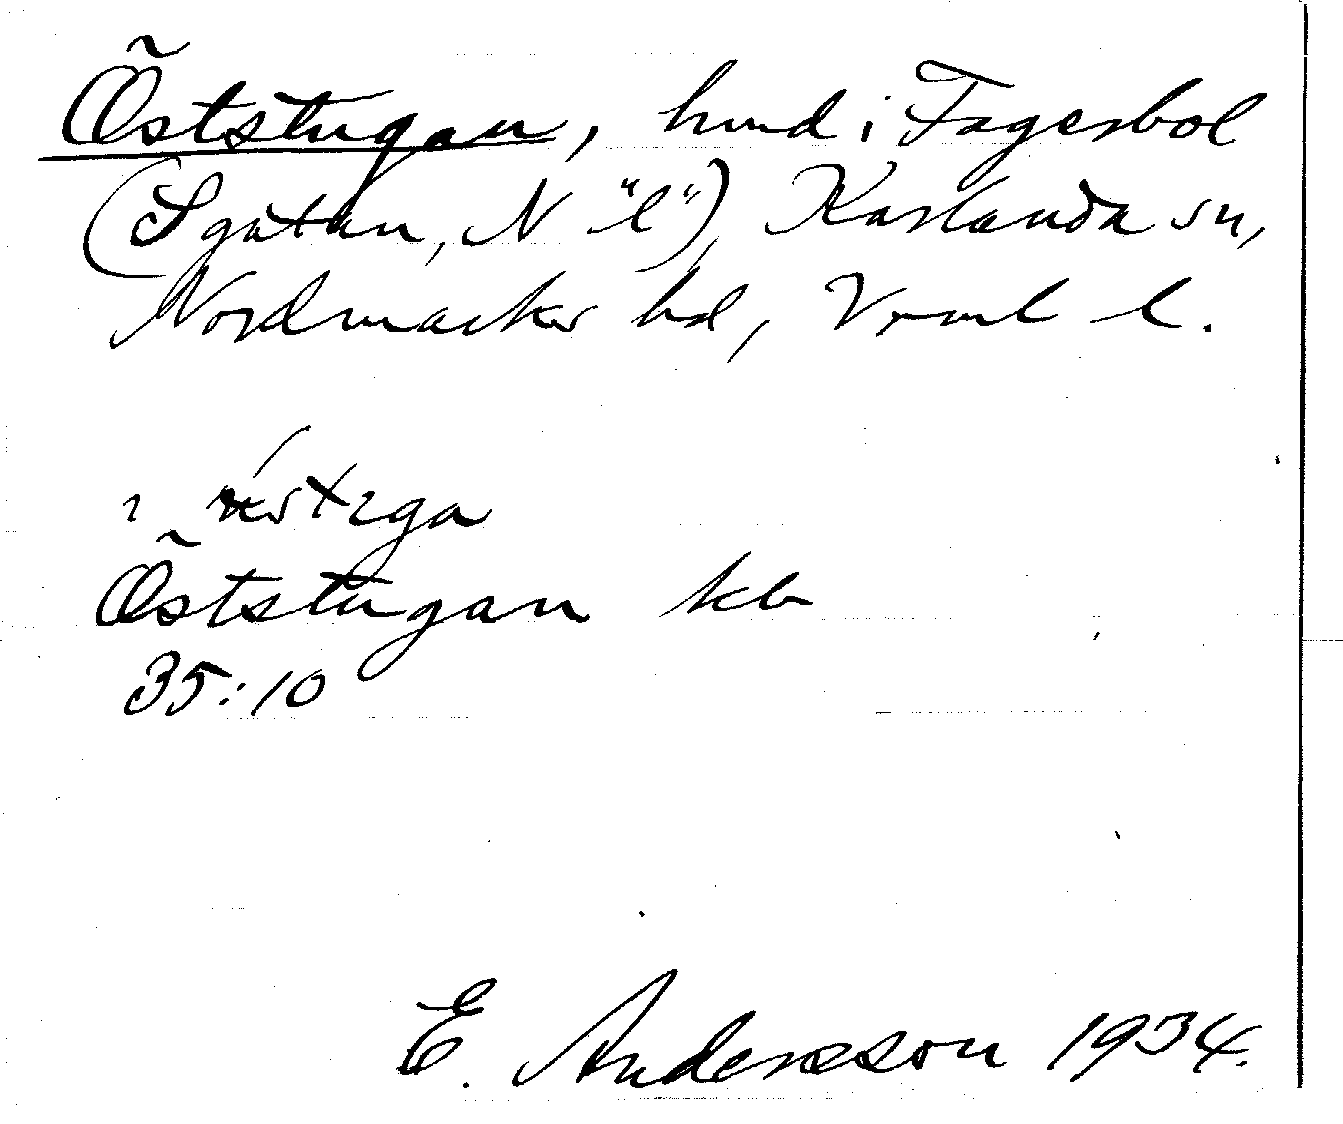 Öststugan, hmd i Fagerbol
(S gatan, N "l"), Karlanda sn,
Nordmarks hd, Vrml l.
Öststugan kb
35:10
E. Andersson 1934.